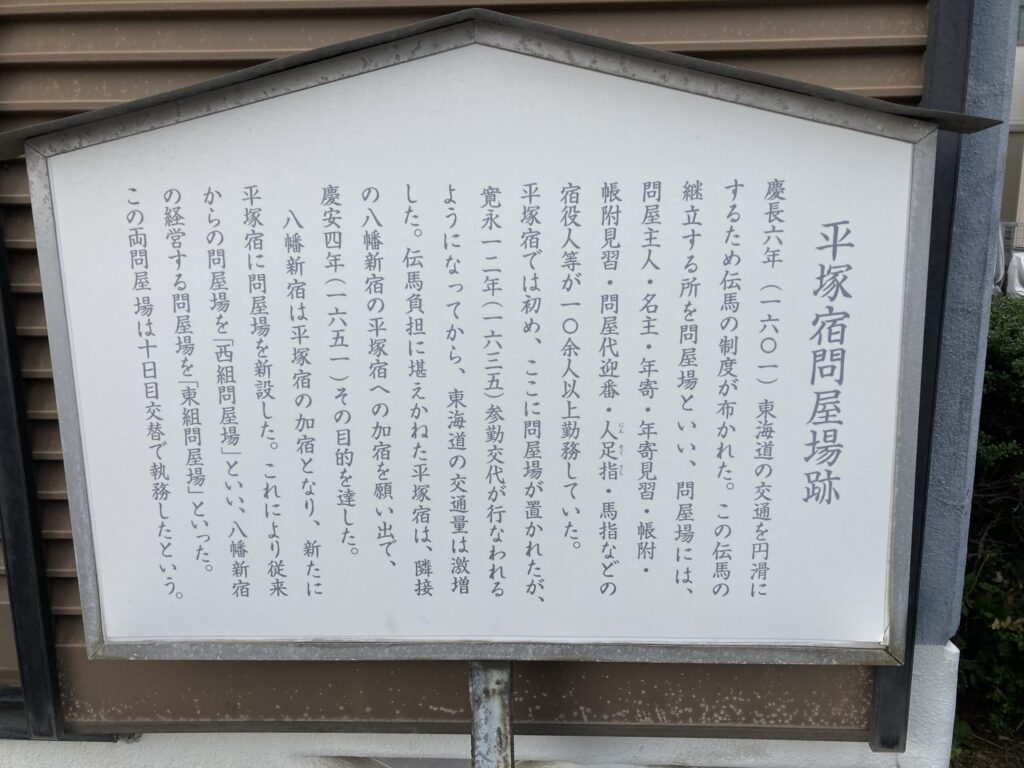 平塚宿問屋場跡
慶長六年（一六〇一）東海道の交通を円滑に
するため伝馬の制度が布かれた。この伝馬の
継立する所を問屋場といい、問屋場には、
問屋主人・名主・年寄・年寄見習・帳附・
帳附見習・問屋代迎番・人足指・馬指などの
宿役人等が一〇余人以上勤務していた。
平塚宿では初め、ここに問屋場が置かれたが、
寛永一二年（一六三五）参勤交代が行なわれる
ようになってから、東海道の交通量は激増
した。伝馬負担に堪えかねた平塚宿は、隣接
の八幡新宿の平塚宿への加宿を願い出て、
慶安四年（一六五一）その目的を達した。
八幡新宿は平塚宿の加宿となり、新たに
平塚宿に問屋場を新設した。これにより従来
からの問屋場を「西組問屋場」といい、八幡新宿
の経営する問屋場を「東組問屋場」といった。
この両問屋場は十日目交替で執務したという。